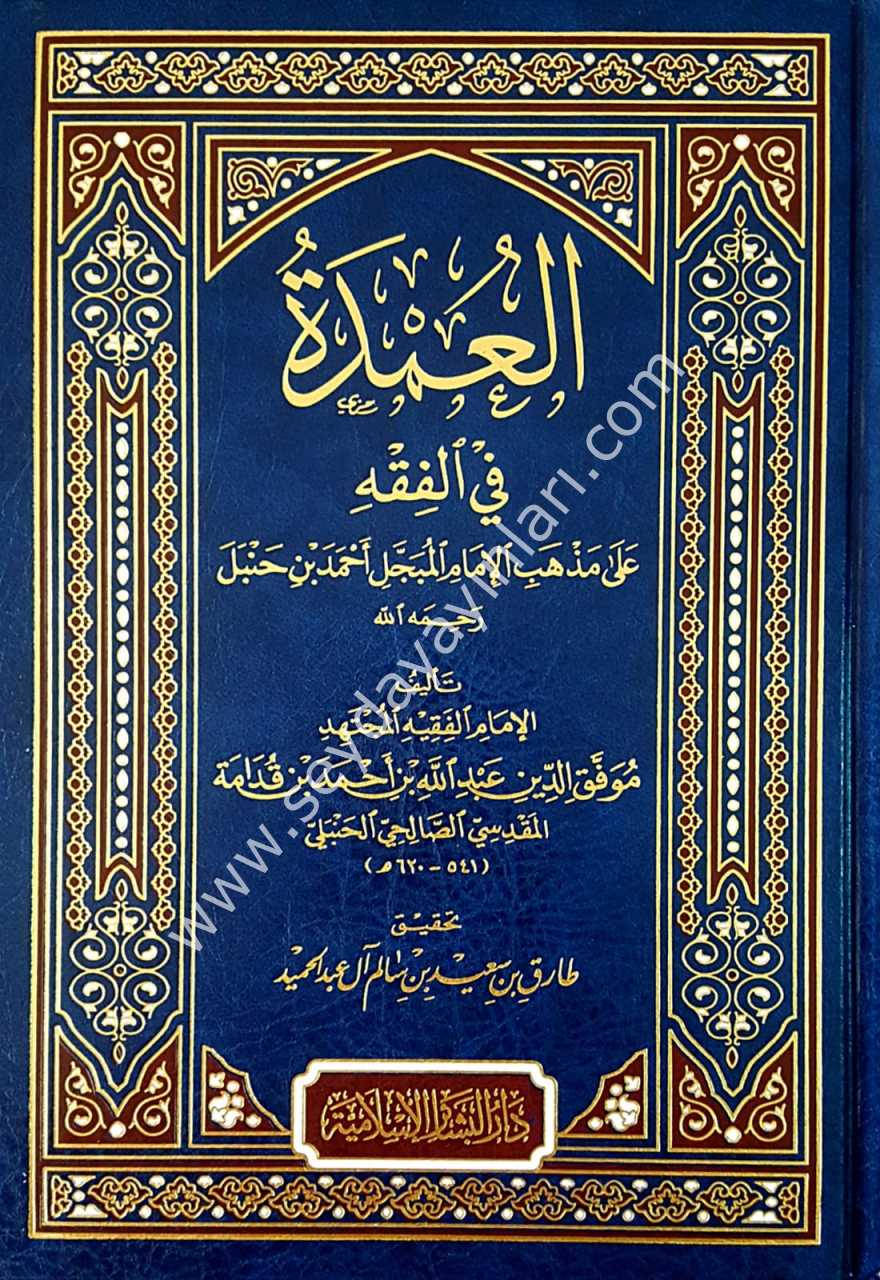 العُمْدَةُ
فِي الفِقْهِ
عَلَى مَذْهَبِ الإِمَامِ المُبَجَّلِ أَحْمَدَ بْنِ حَنْبَلَ
رَحِمَهُ الله
تَأليفُ
الإِمَامِ الفَقِيهِ المُجْتَهِدِ
مُوَفَّقِ الدِّينِ عَبْدِ اللَّهِ بْنِ أَحْمَدَ بْنِ قُدَامَةَ
المَقْدِسِيِّ الصَّالِحِيِّ الحَنْبَلِيِّ
(٥٤١ - ٦٢٠هـ)
تحقيق
طارق بن سعيد بن سالم آل عبد الحميد
دَارُ البَشَائِر الإِسْلَامِيَّة
www.seydayayinlari.com